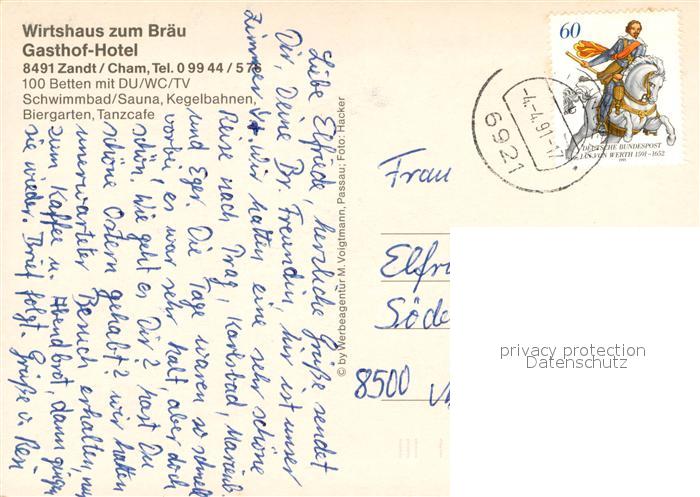 Wirtshaus zum Bräu
Gasthof-Hotel
8491 Zandt / Cham, Tel. 0 99 44 / 5 76
100 Betten mit DU/WC/TV
Schwimmbad/Sauna, Kegelbahnen,
Biergarten, Tanzcafe
Liebe Elfriede, herzliche Grüße sendet
Dir, Deine Br. Freundin, hier ist unser
Zimmer. Wir hatten eine sehr schöne
Reise nach Prag, Karlsbad, Marienb.
und Eger. Die Tage waren so schnell
vorbei, es war sehr kalt aber doch
schön. Wie geht es Dir? hast Du
schöne Ostern gehabt? wir hatten
unerwarteter Besuch erhalten, nur
zum Kaffee u. Abendbrot, dann gingen
sie wieder. Brief folgt. Grüße v.
© by Werbeagentur M. Voigtmann, Passau; Foto: Hacker
60
DEUTSCHE BUNDESPOST
JAN VON WERTH 1591-1652
1991
-4.-4.91-17
6921
Frau
Elfri
Söde
8500
privacy protection
Datenschutz